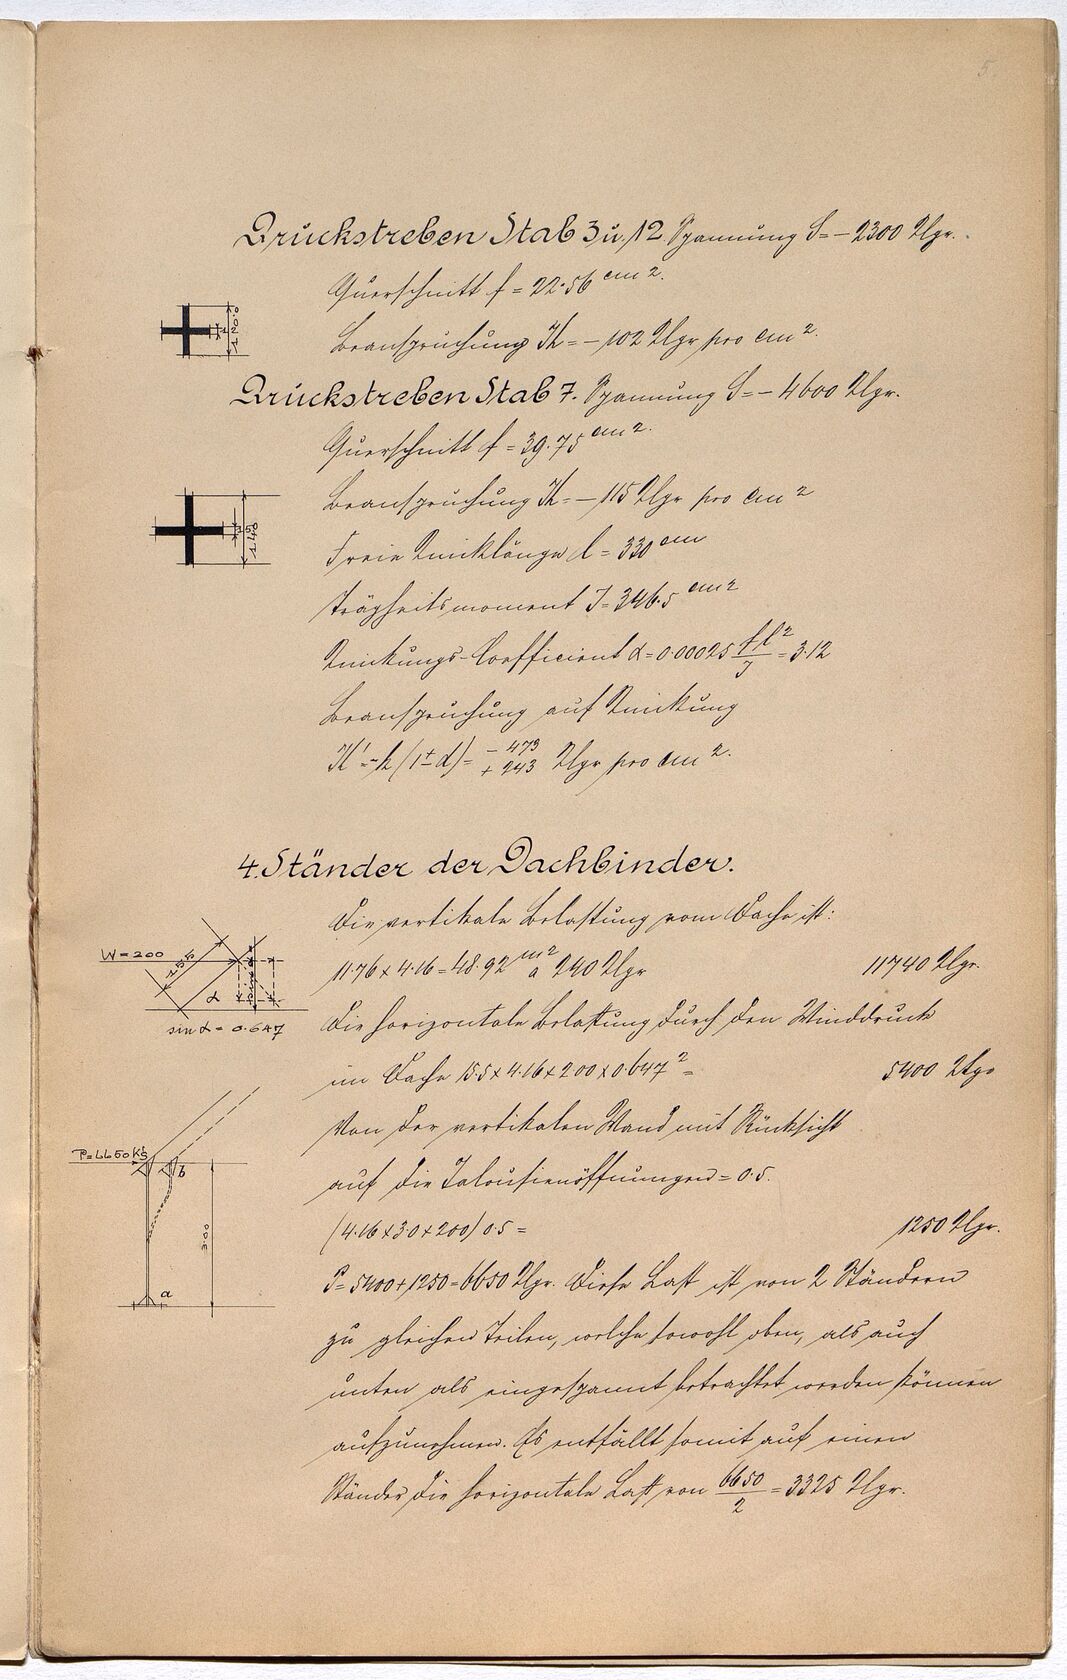 5.
Druckstreben Stab 3 u. 12. Spannung S = - 2300 Klgr.
Querschnitt f = 22.56 cm2.
Beanspruchung K = - 102 Klgr pro cm2.
Druckstreben Stab 7. Spannung S = - 4600 Klgr.
Querschnitt f = 39.75 cm2.
Beanspruchung K = - 115 Klgr pro cm2
Freie Knicklänge l = 330 cm
Trägheitsmoment J = 346.5 cm2
Knickungs-Coefficient α = 0.00025 fl2/J = 3.12
Beanspruchung auf Knickung
K' = -k (1 ± α) = - 473 + 243 Klgr pro cm2.
4. Ständer der Dachbinder.
Die vertikale Belastung vom Dache ist:
W = 200
11.76 x 4.16 = 48.92 m2 a 240 Klgr 11740 Klgr.
sin α = 0.647
Die horizontale Belastung durch den Winddruck
im Dache 15.5 x 4.16 x 200 x 0.647 2 = 5400 Klgr
Von der vertikalen Wand mit Rücksicht
P = 6650 Kg
b
auf die Jalousienöffnungen = 0.5.
(4.16 x 3.0 x 200) 0.5 = 1250 Klgr.
3.00
P = 5400 + 1250 = 6650 Klgr. Diese Last ist von 2 Ständern
a
zu gleichen Teilen, welche sowohl oben, als auch
unten als eingespannt betrachtet werden können
aufzunehmen. Es entfällt somit auf einen
Ständer die horizontale Last von 6650/2 = 3325 Klgr.